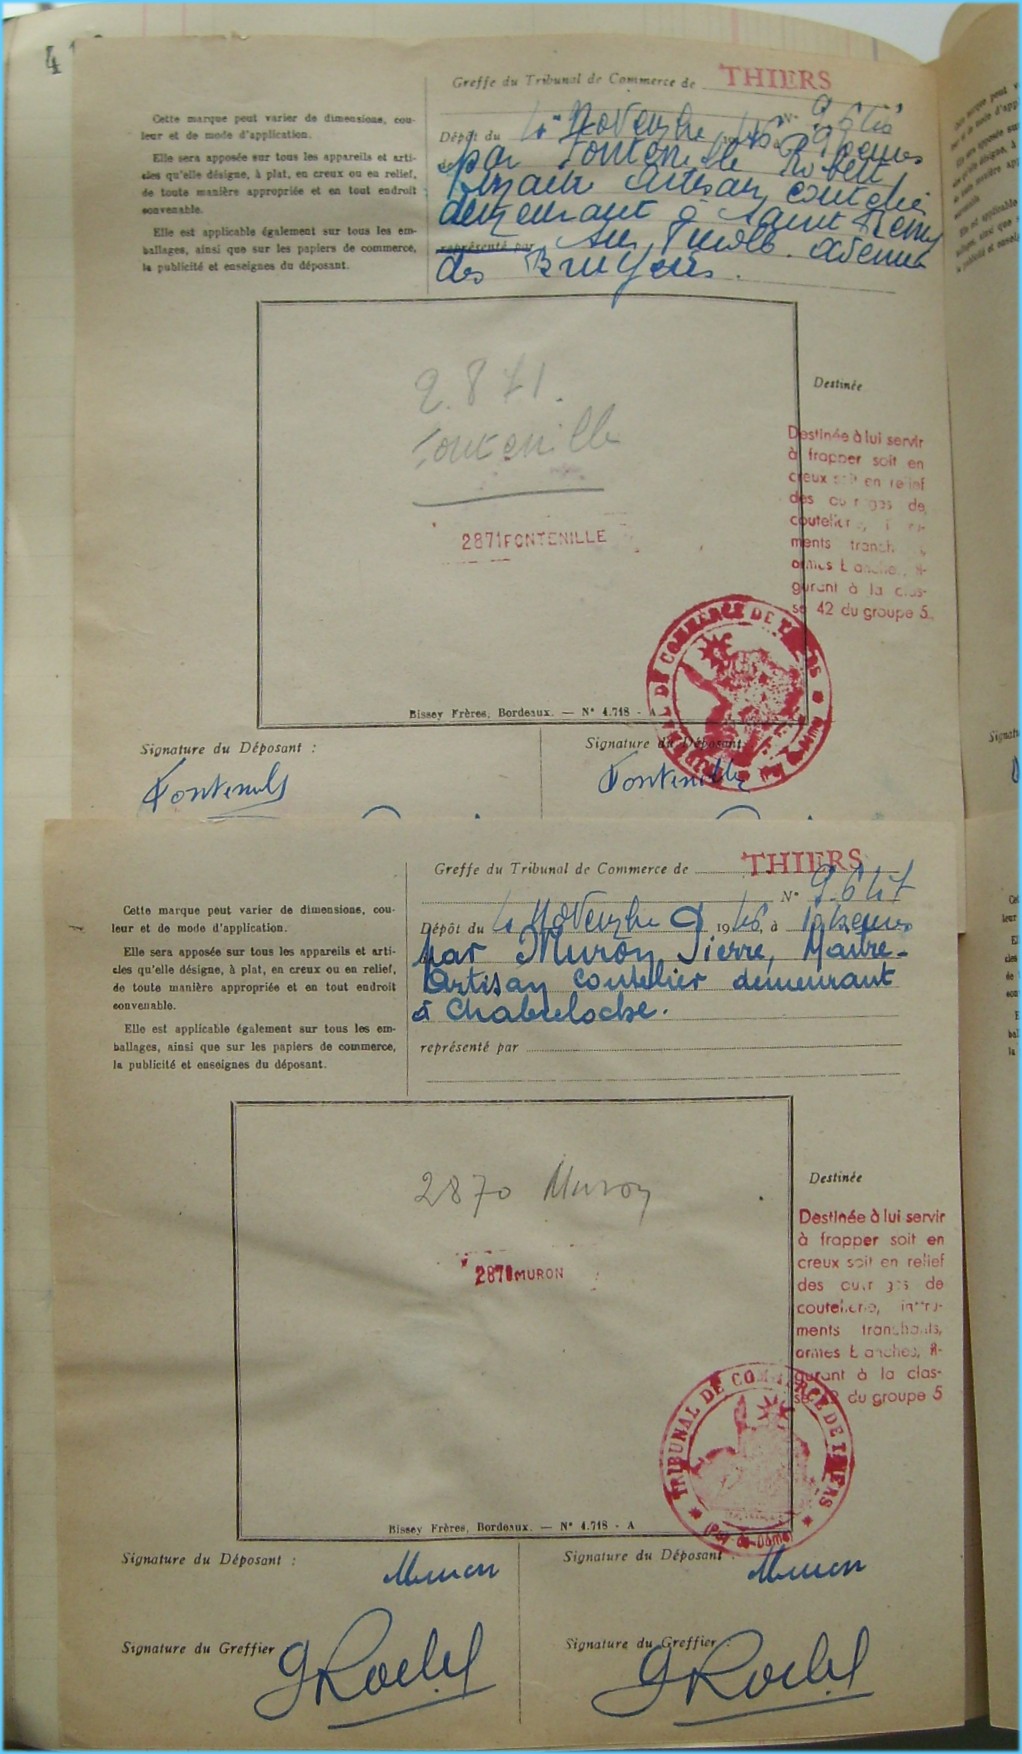 Greffe du Tribunal de Commerce de THIERS
Cette marque peut varier de dimensions, cou-
leur et de mode d'application.
Elle sera apposée sur tous les appareils et arti-
cles qu'elle désigne, à plat, en creux ou en relief,
de toute manière appropriée et en tout endroit
convenable.
Elle est applicable également sur tous les em-
ballages, ainsi que sur les papiers de commerce,
la publicité et enseignes du déposant.
N° 9.646
Dépôt du 4 Novembre 1946 à 9 heures
par Fontenille Robert
Artisan coutelier
demeurant à Saint Rémy
représenté par sur Durolle. avenue
des Bruyères.
2.871.
Fontenille
2871 FONTENILLE
Destinée
Destinée à lui servir
à frapper soit en
creux soit en relief
des ouvrages de
coutellerie, instru-
ments tranchants,
armes blanches, fi-
gurant à la clas-
se 42 du groupe 5.
TRIBUNAL DE COMMERCE DE THIERS
Bissey Frères, Bordeaux. — N° 4.718 - A
Signature du Déposant :
Signature du Déposant
Fontenille
Fontenille
Greffe du Tribunal de Commerce de THIERS
Cette marque peut varier de dimensions, cou-
leur et de mode d'application.
Elle sera apposée sur tous les appareils et arti-
cles qu'elle désigne, à plat, en creux ou en relief,
de toute manière appropriée et en tout endroit
convenable.
Elle est applicable également sur tous les em-
ballages, ainsi que sur les papiers de commerce,
la publicité et enseignes du déposant.
N° 9.647
Dépôt du 4 Novembre 1946, à 10 heures
par Muron Pierre, Maître-
Artisan coutelier demeurant
à Chabreloche.
représenté par
2870 Muron
2870 MURON
Destinée
Destinée à lui servir
à frapper soit en
creux soit en relief
des ouvrages de
coutellerie, instru-
ments tranchants,
armes blanches, fi-
gurant à la clas-
se 42 du groupe 5
TRIBUNAL DE COMMERCE DE THIERS
(Puy-de-Dôme)
Bissey Frères, Bordeaux. — N° 4.718 - A
Signature du Déposant :
Signature du Déposant :
Muron
Muron
Signature du Greffier
Signature du Greffier :